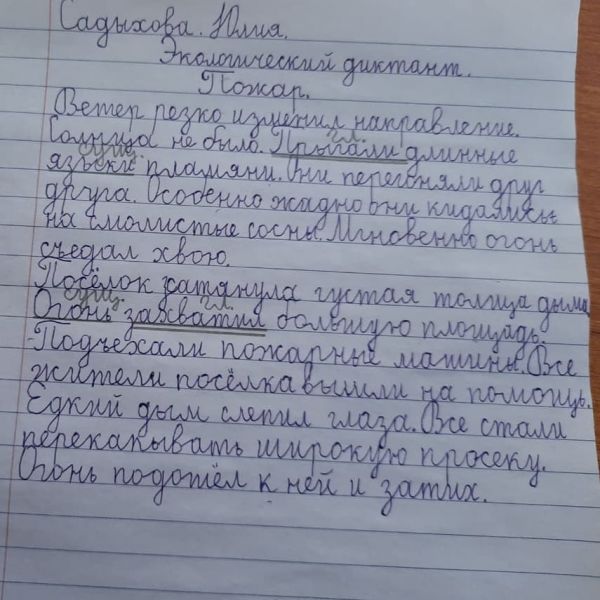 Садыхова. Юлия.
Экологический диктант.
Пожар.
Ветер резко изменил направление.
гл.
Солнца не было. Прыгали длинные
сущ.
языки пламяни. Они перегоняли друг
друга. Особенно жадно они кидались
на смолистые сосны. Мгновенно огонь
съедал хвою.
Посёлок затянула густая толща дыма
сущ. гл.
Огонь захватил большую площадь.
Подъехали пожарные машины. Все
жители посёлка вышли на помощь.
Едкий дым слепил глаза. Все стали
перекапывать широкую просеку.
Огонь подошёл к ней и затих.